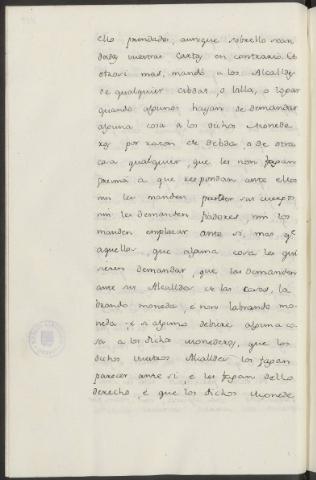 ello prendades, aunque sobrello sean
dadas nuestras Cartas en contrario. Et
otrosi mas, mando a los Alcalldes
de qualquier cibdat, o Villa, o logar
quando algunos hayan de demandar
alguna cosa a los dichos Monede-
ros por razon de debda o de otra
cosa qualquier, que les non fagan
premia a que respondan ante ellos
nin les manden prender sus cuerpos,
nin les demanden fiadores, nin los
manden emplazar ante si, mas qe.
aquellos, que alguna cosa les qui
sieren demandar, que les demanden
ante sus Alcalldes de las casas, la
brando moneda, e non labrando mo-
neda. E si alguno debiere alguna co
sa a los dichos monederos, que los
dichos vuestros Alcalldes los fagan
parecer ante si, e les fagan dello
derecho, e que los dichos Monede